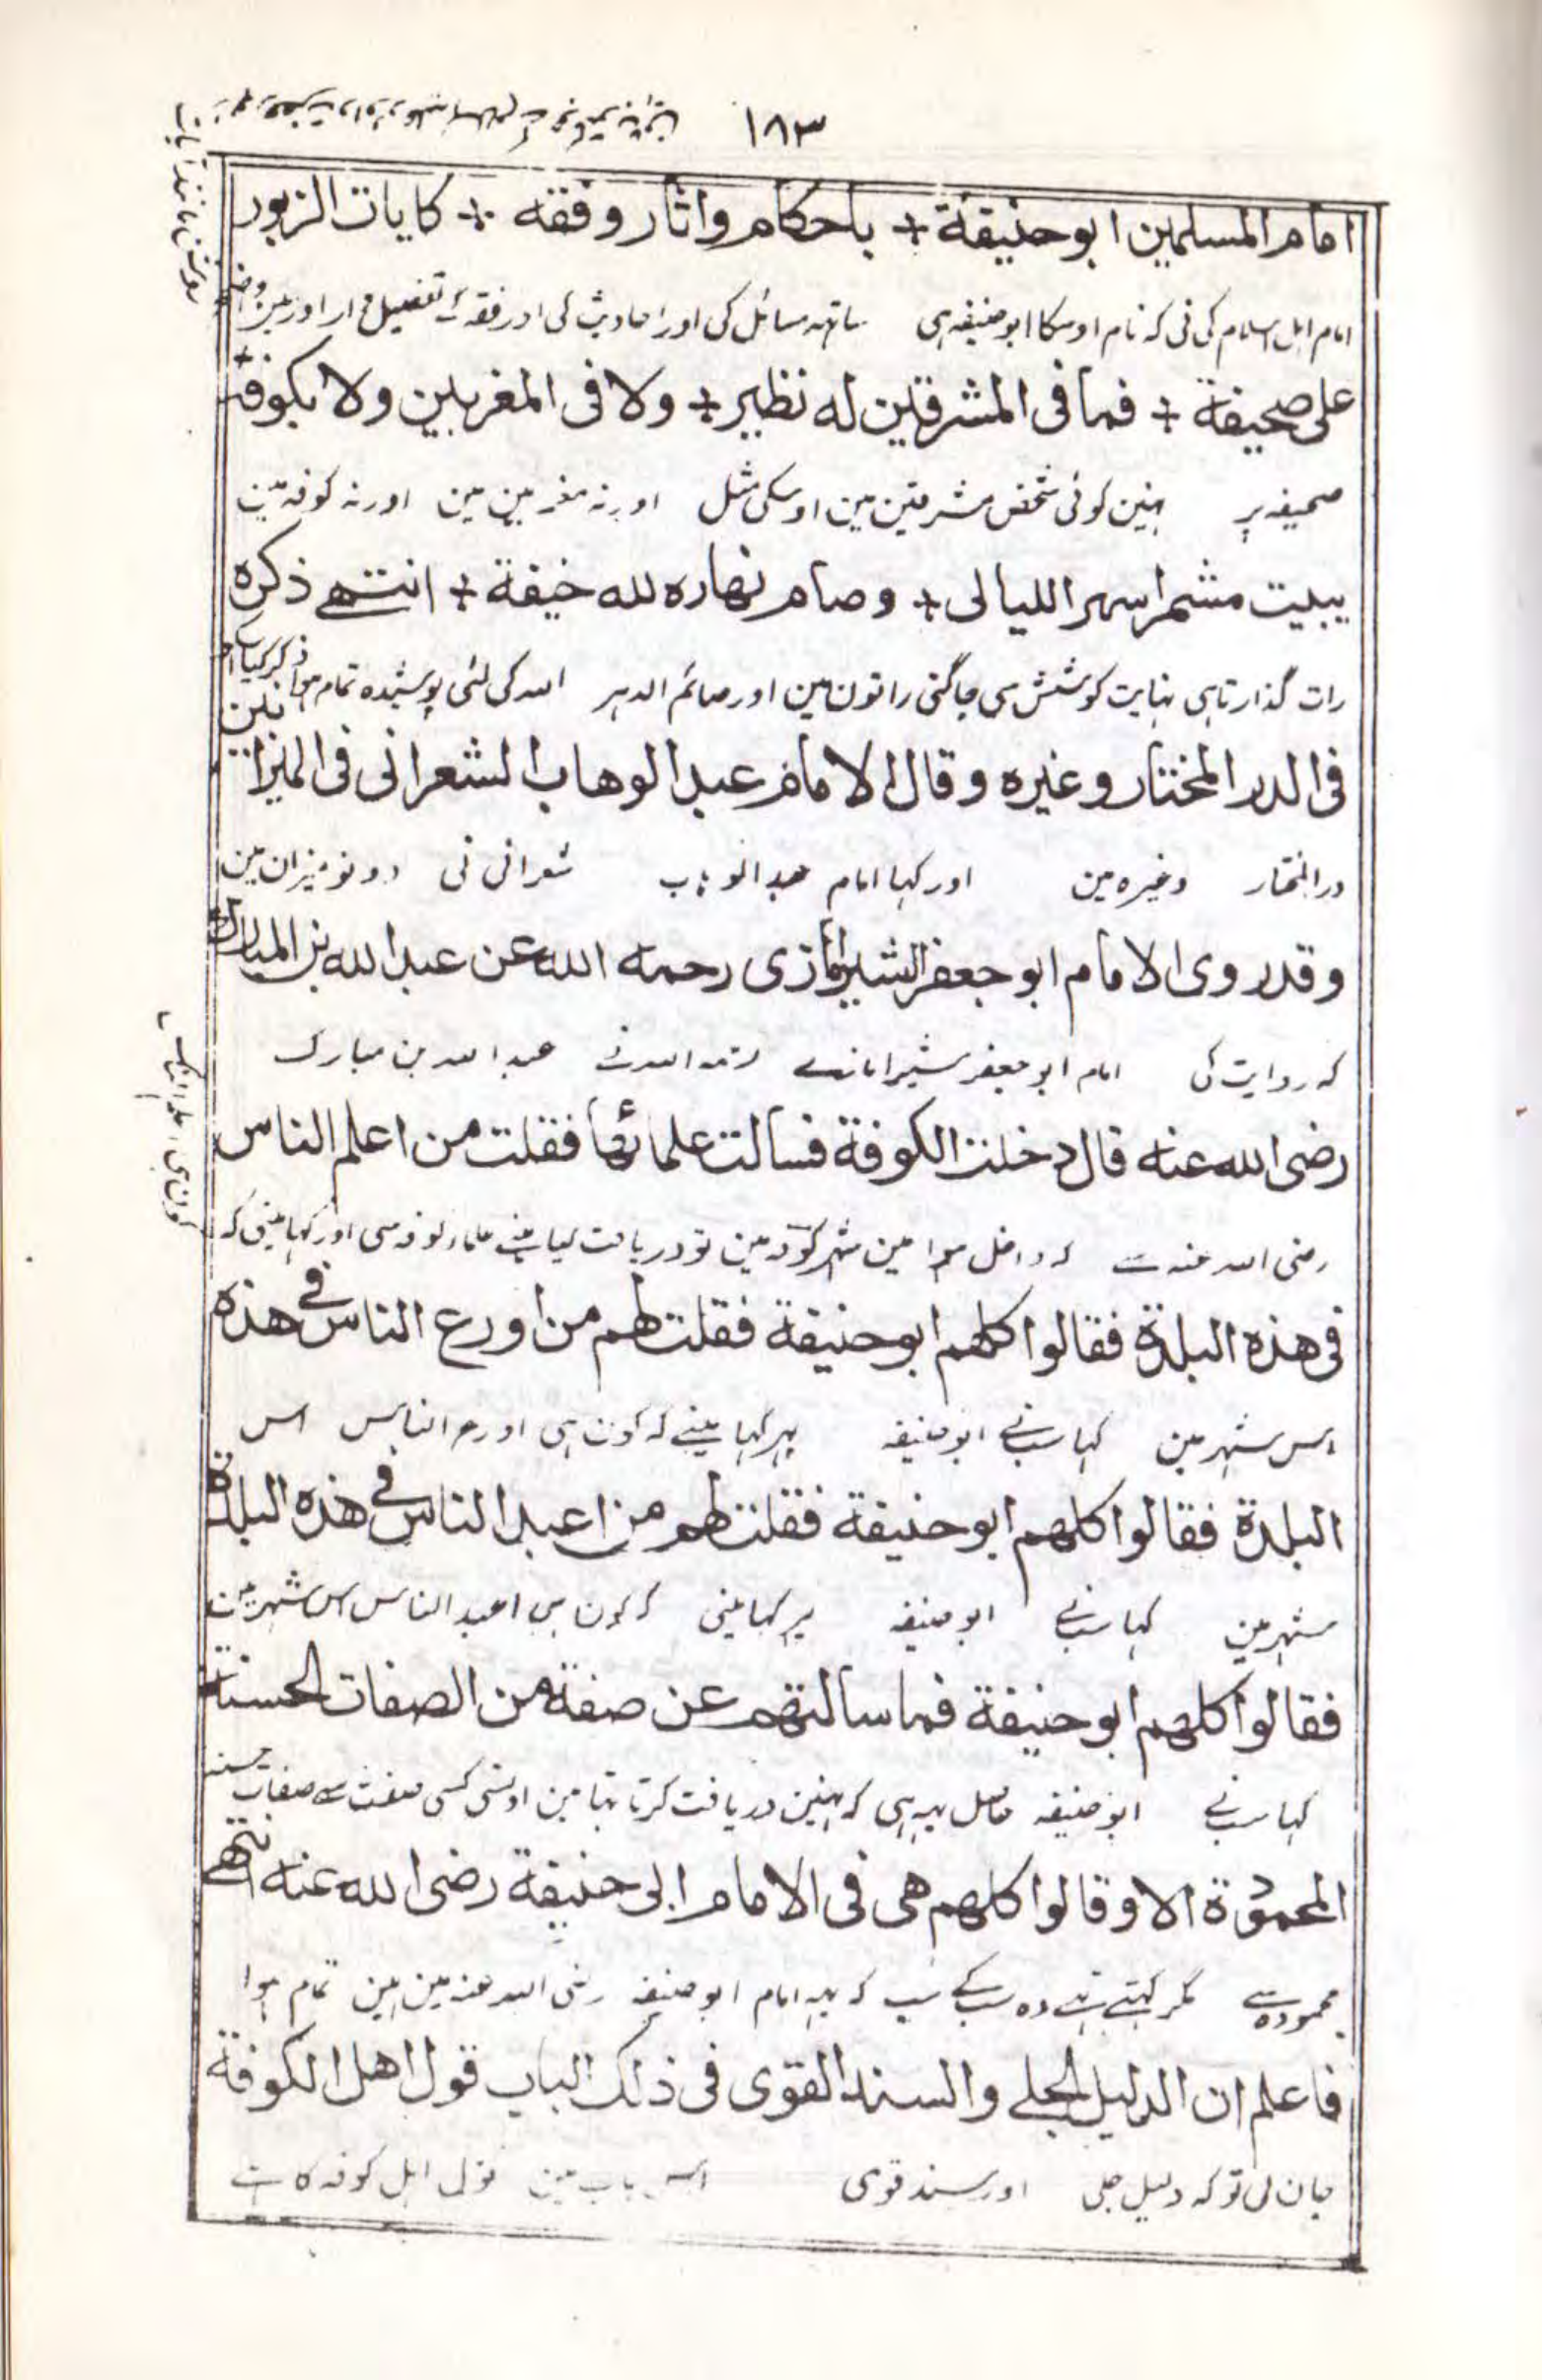 ١٨٣
امام المسلمين ابو حنيفة + باحكام واثار وفقه + كايات الزبور
امام اہل اسلام کی نی کہ نام اوسکا ابو حنیفہ ہی ساتہہ مسائل کی اور احادیث کی اور فقہ کے تفصیل
على صحيفة + فما فى المشرقين له نظير + ولا فى المغربين ولا بكوفة
صحیفہ پر نہین کوئی شخص مشرقین مین اوسکی مثل اور نہ مغربین مین اور نہ کوفہ مین
يبيت مشمرا سهر الليالى + وصام نهاره لله خيفة + انتهے ذكره
رات گذارتا ہی نہایت کوشش سی جاگتی راتون مین اور صائم الدہر اللہ کی لئی پوشیدہ تمام ہوا ذکر کیا
فى الدر المختار وغيره وقال الامام عبد الوهاب الشعرانى فى الميزانين
در المختار وغیرہ مین اور کہا امام عبد الوہاب شعرانی نی دونو میزان مین
وقد روى الامام ابو جعفر الشيرامازى رحمه الله عن عبد الله بن المبارك
کہ روایت کی امام ابو جعفر شیرامازے رحمہ اللہ نے عبد اللہ بن مبارک
رضى الله عنه قال دخلت الكوفة فسالت علمائها فقلت من اعلم الناس
رضی اللہ عنہ سے کہ داخل ہوا مین شہر کوفہ مین تو دریافت کیا مینے علماء کوفہ سی اور کہا مینی کہ
کون ہی اعلم الناس
فى هذه البلدة فقالوا كلهم ابو حنيفة فقلت لهم من اورع الناس فے هذه
اس شہر مین کہا سبنے ابو حنیفہ پہر کہا مینے کہ کون ہی اورع الناس اس
البلدة فقالوا كلهم ابو حنيفة فقلت لهم من اعبد الناس فے هذه البلدة
شہر مین کہا سبنے ابو حنیفہ پہر کہا مینی کہ کون ہی اعبد الناس اس شہر مین
فقالوا كلهم ابو حنيفة فما سالتهم عن صفة من الصفات الحسنة
کہا سبنے ابو حنیفہ حاصل یہہ ہی کہ نہین دریافت کرتا تہا مین اونسی کسی صفت سے صفات حسنہ
المحمودة الا وقالوا كلهم هى فى الامام ابى حنيفة رضى الله عنه انتهے
محمودہ سے مگر کہتے تہے وہ سب کے سب کہ یہہ امام ابو حنیفہ رضی اللہ عنہ مین ہین تمام ہوا
فاعلم ان الدليل الجلے والسند القوى فى ذلك الباب قول اهل الكوفة
جان لی تو کہ دلیل جلی اور سند قوی اس باب مین قول اہل کوفہ کا ہے